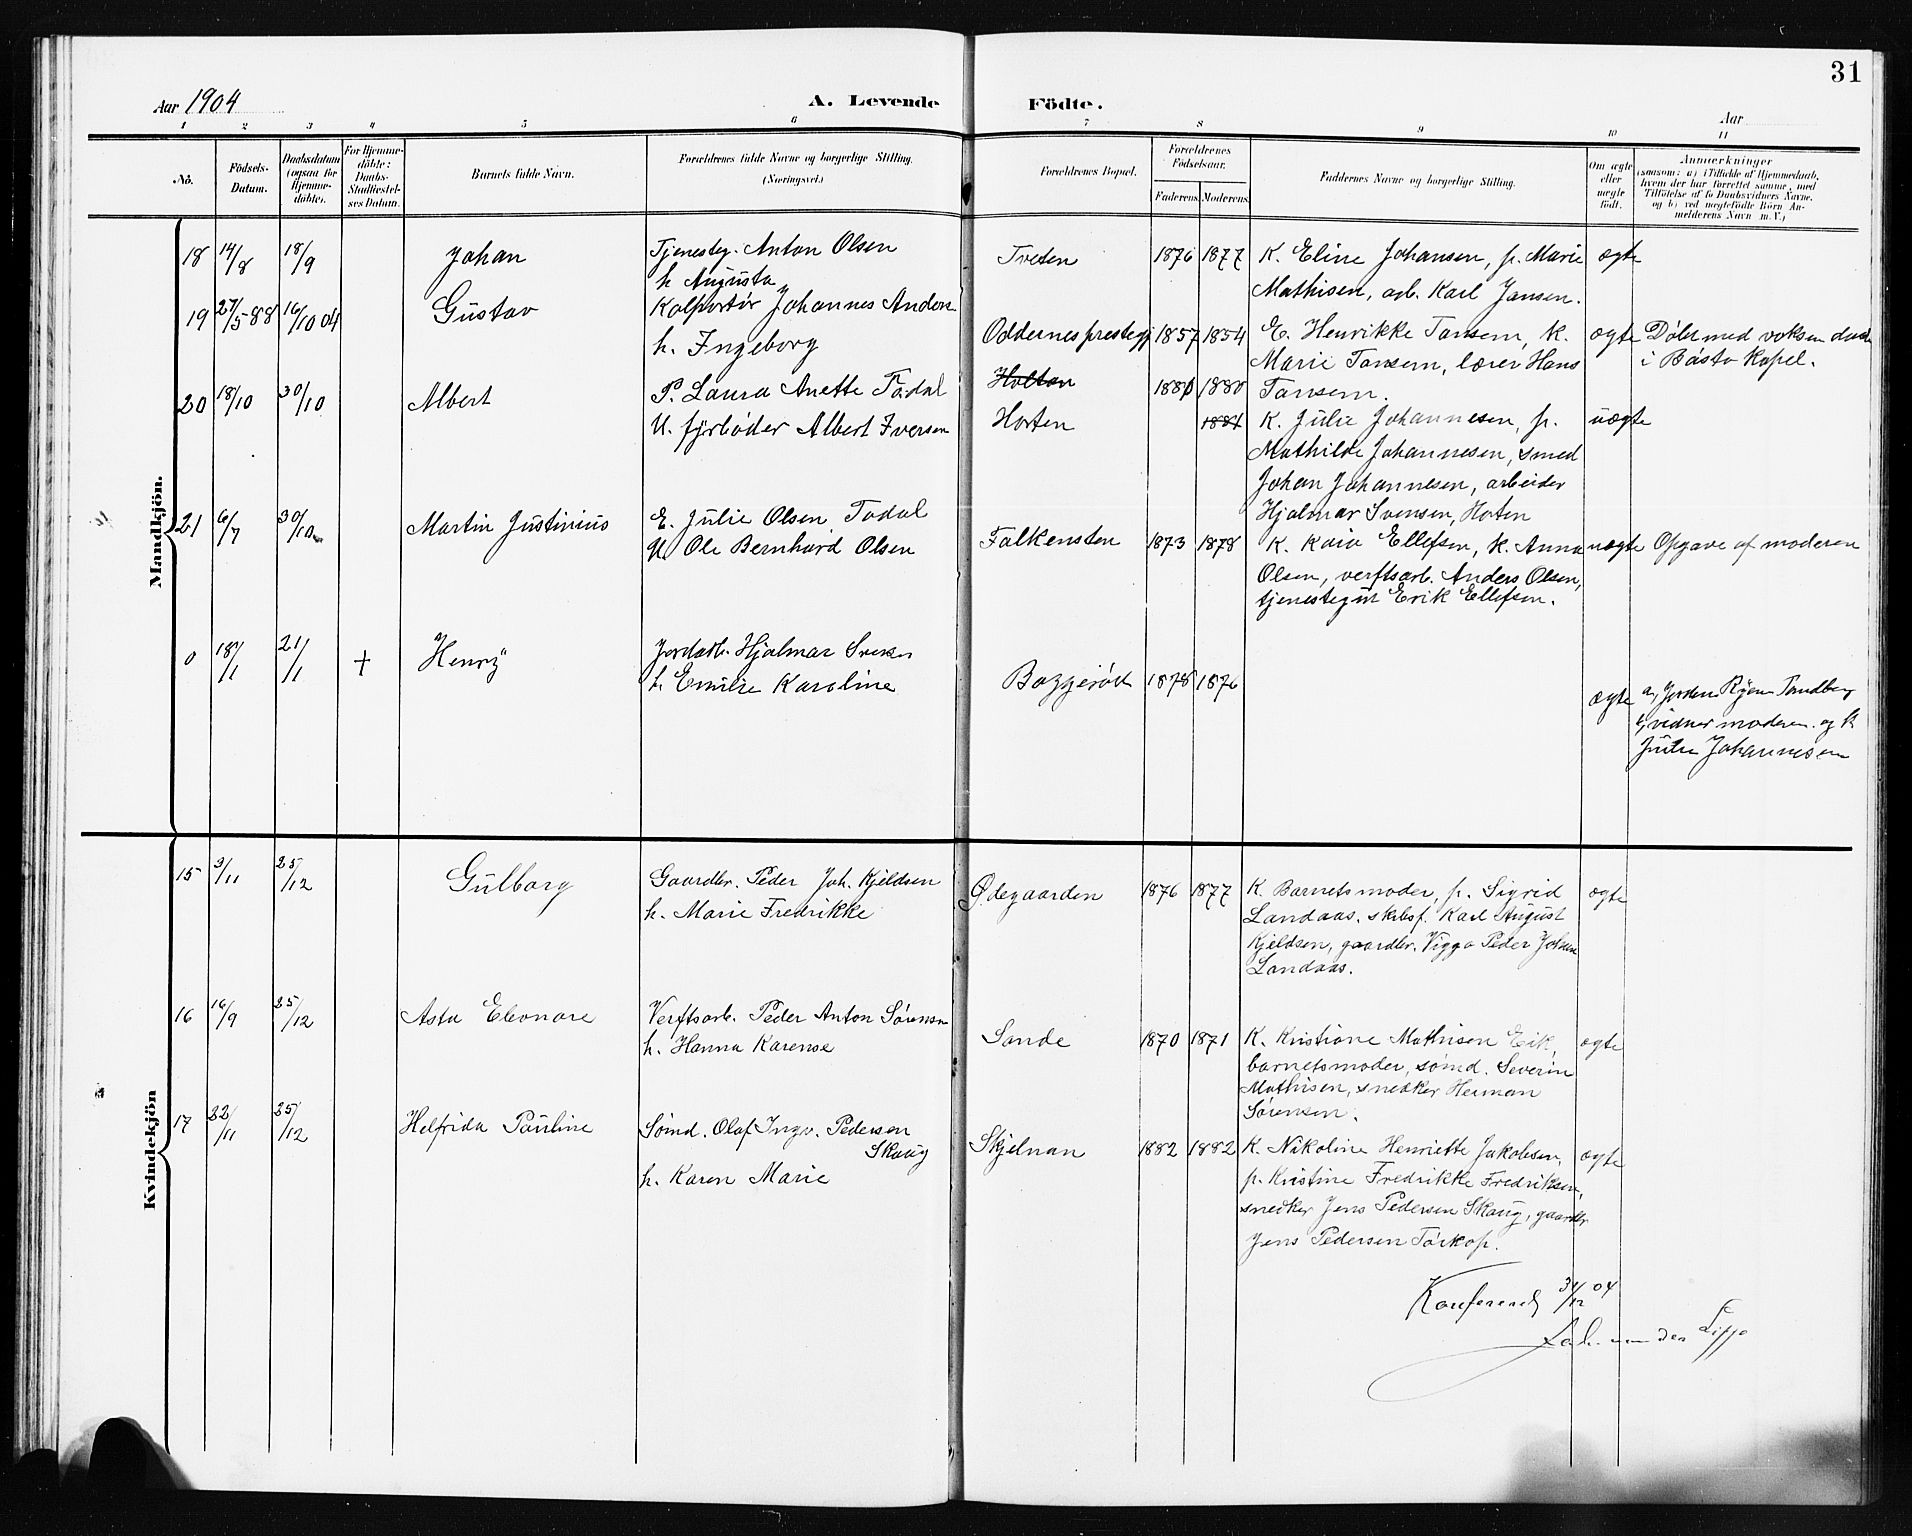 31
Aar 1904
A. Levende Födte.
Aar
1 2 3 4 5 6 7 8 9 10 11
No.
Födsels-Datum.
Daabsdatum (ogsaa for Hjemme-döbte).
For Hjemme-döbte: Daabs-Stadfæstel-ses Datum.
Barnets fulde Navn.
Forældrenes fulde Navne og borgerlige Stilling. (Næringsvei.)
Forældrenes Bopæl.
Forældrenes Födselsaar.
Faderens Moderens
Faddernes Navne og borgerlige Stilling.
Om ægte eller uægte födt.
Anmærkninger
(saasom: a) i Tilfælde af Hjemmedaab,
hvem der har forrettet samme, med
Tilföielse af to Daabsvidners Navne,
og b) ved uægtefödte Börn An-
melderens Navn m. V.)
Mandkjön.
18 14/8 18/9 Johan
Tjenesteg. Anton Olsen
h. Augusta
Tveten 1876 1877
K. Eline Johansen, p. Marie
Mathisen, arb. Karl Jansen.
ægte
19 27/5 88 16/10 04 Gustav
Kolportør Johannes Anders
h. Ingeborg
Oddernes prestegj 1857 1854
E. Henrikke Tansem, K.
Marie Tansem, lærer Hans
Tansem.
ægte
Døbt med voksen daab
i Båstø Kapel.
20 18/10 30/10 Albert
P. Laura Anette Todal
U. fyrbøder Albert Iversen
Holtan
Horten
1880 1880
1881
K. Julie Johannesen, p.
Mathilde Johannesen, smed
Johan Johannesen, arbeider
Hjalmar Svensen, Horten
uægte
21 6/7 30/10 Martin Justinius
E. Julie Olsen Todal
U. Ole Bernhard Olsen
Falkensten 1873 1878
K. Kaia Ellefsen, K. Anna
Olsen, verftsarb. Anders Olsen,
tjenestegut Erik Ellefsen.
uægte Opgave af moderen
0 18/1 21/1 + Henry
Jordarb. Hjalmar
h. Emilie Karoline
Boggerød 1878 1876
ægte
a, Jordm. Tandberg
b, vidner moderen og K
Julie Johannesen
Kvindekjön
15 3/11 25/12 Gulborg
Gaardbr. Peder Joh. Kjeldsen
h. Marie Fredrikke
Ødegaarden 1876 1877
K. Barnets moder, p. Sigrid
Landaas, skibsf. Karl August
Kjeldsen, gaardbr. Viggo Peder Johan
Landaas.
ægte
16 16/9 25/12 Asta Eleonore
Verftsarb. Peder Anton Sørensen
h. Hanna Karense
Sande 1870 1871
K. Kristiane Mathisen Eik,
barnets moder, sømd. Severin
Mathisen, snedker Herman
Sørensen.
ægte
17 22/11 25/12 Helfrida Pauline
Sømd. Olaf Ingv. Pedersen
Skaug
h. Karen Marie
Skjelnan 1882 1882
K. Nikoline Henriette Jakobsen,
p. Kristine Fredrikke Fredriksen,
snedker Jens Pedersen Skaug, gaardbr
Jens Pedersen Torkop.
ægte
Konfereret 31/12 04